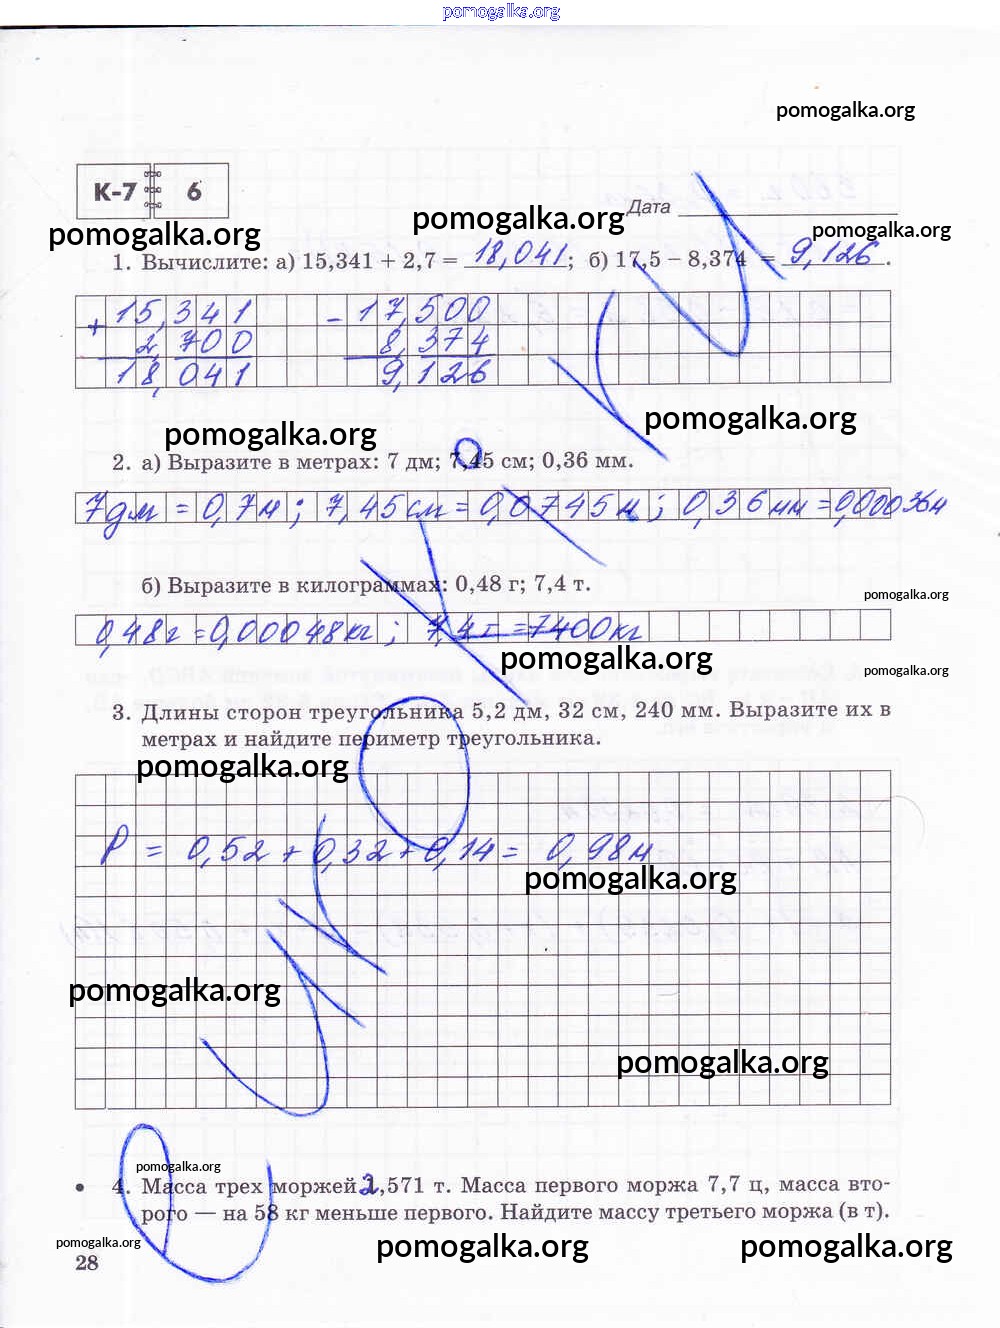 pomogalka.org
pomogalka.org
К-7 6
Дата
pomogalka.org
pomogalka.org
pomogalka.org
1. Вычислите: а) 15,341 + 2,7 = 18,041; б) 17,5 – 8,374 = 9,126.
+ 15,341 – 17,500
2,700 8,374
18,041 9,126
pomogalka.org
pomogalka.org
2. а) Выразите в метрах: 7 дм; 7,45 см; 0,36 мм.
7дм = 0,7м; 7,45см = 0,0745м; 0,36мм = 0,00036м
б) Выразите в килограммах: 0,48 г; 7,4 т.
pomogalka.org
0,48г = 0,00048кг; 7,4т = 7400кг
pomogalka.org
pomogalka.org
3. Длины сторон треугольника 5,2 дм, 32 см, 240 мм. Выразите их в
метрах и найдите периметр треугольника.
pomogalka.org
P = 0,52 + 0,32 + 0,14 = 0,98м
pomogalka.org
pomogalka.org
pomogalka.org
pomogalka.org
• 4. Масса трех моржей 2,571 т. Масса первого моржа 7,7 ц, масса вто-
рого — на 58 кг меньше первого. Найдите массу третьего моржа (в т).
pomogalka.org
pomogalka.org
pomogalka.org
28